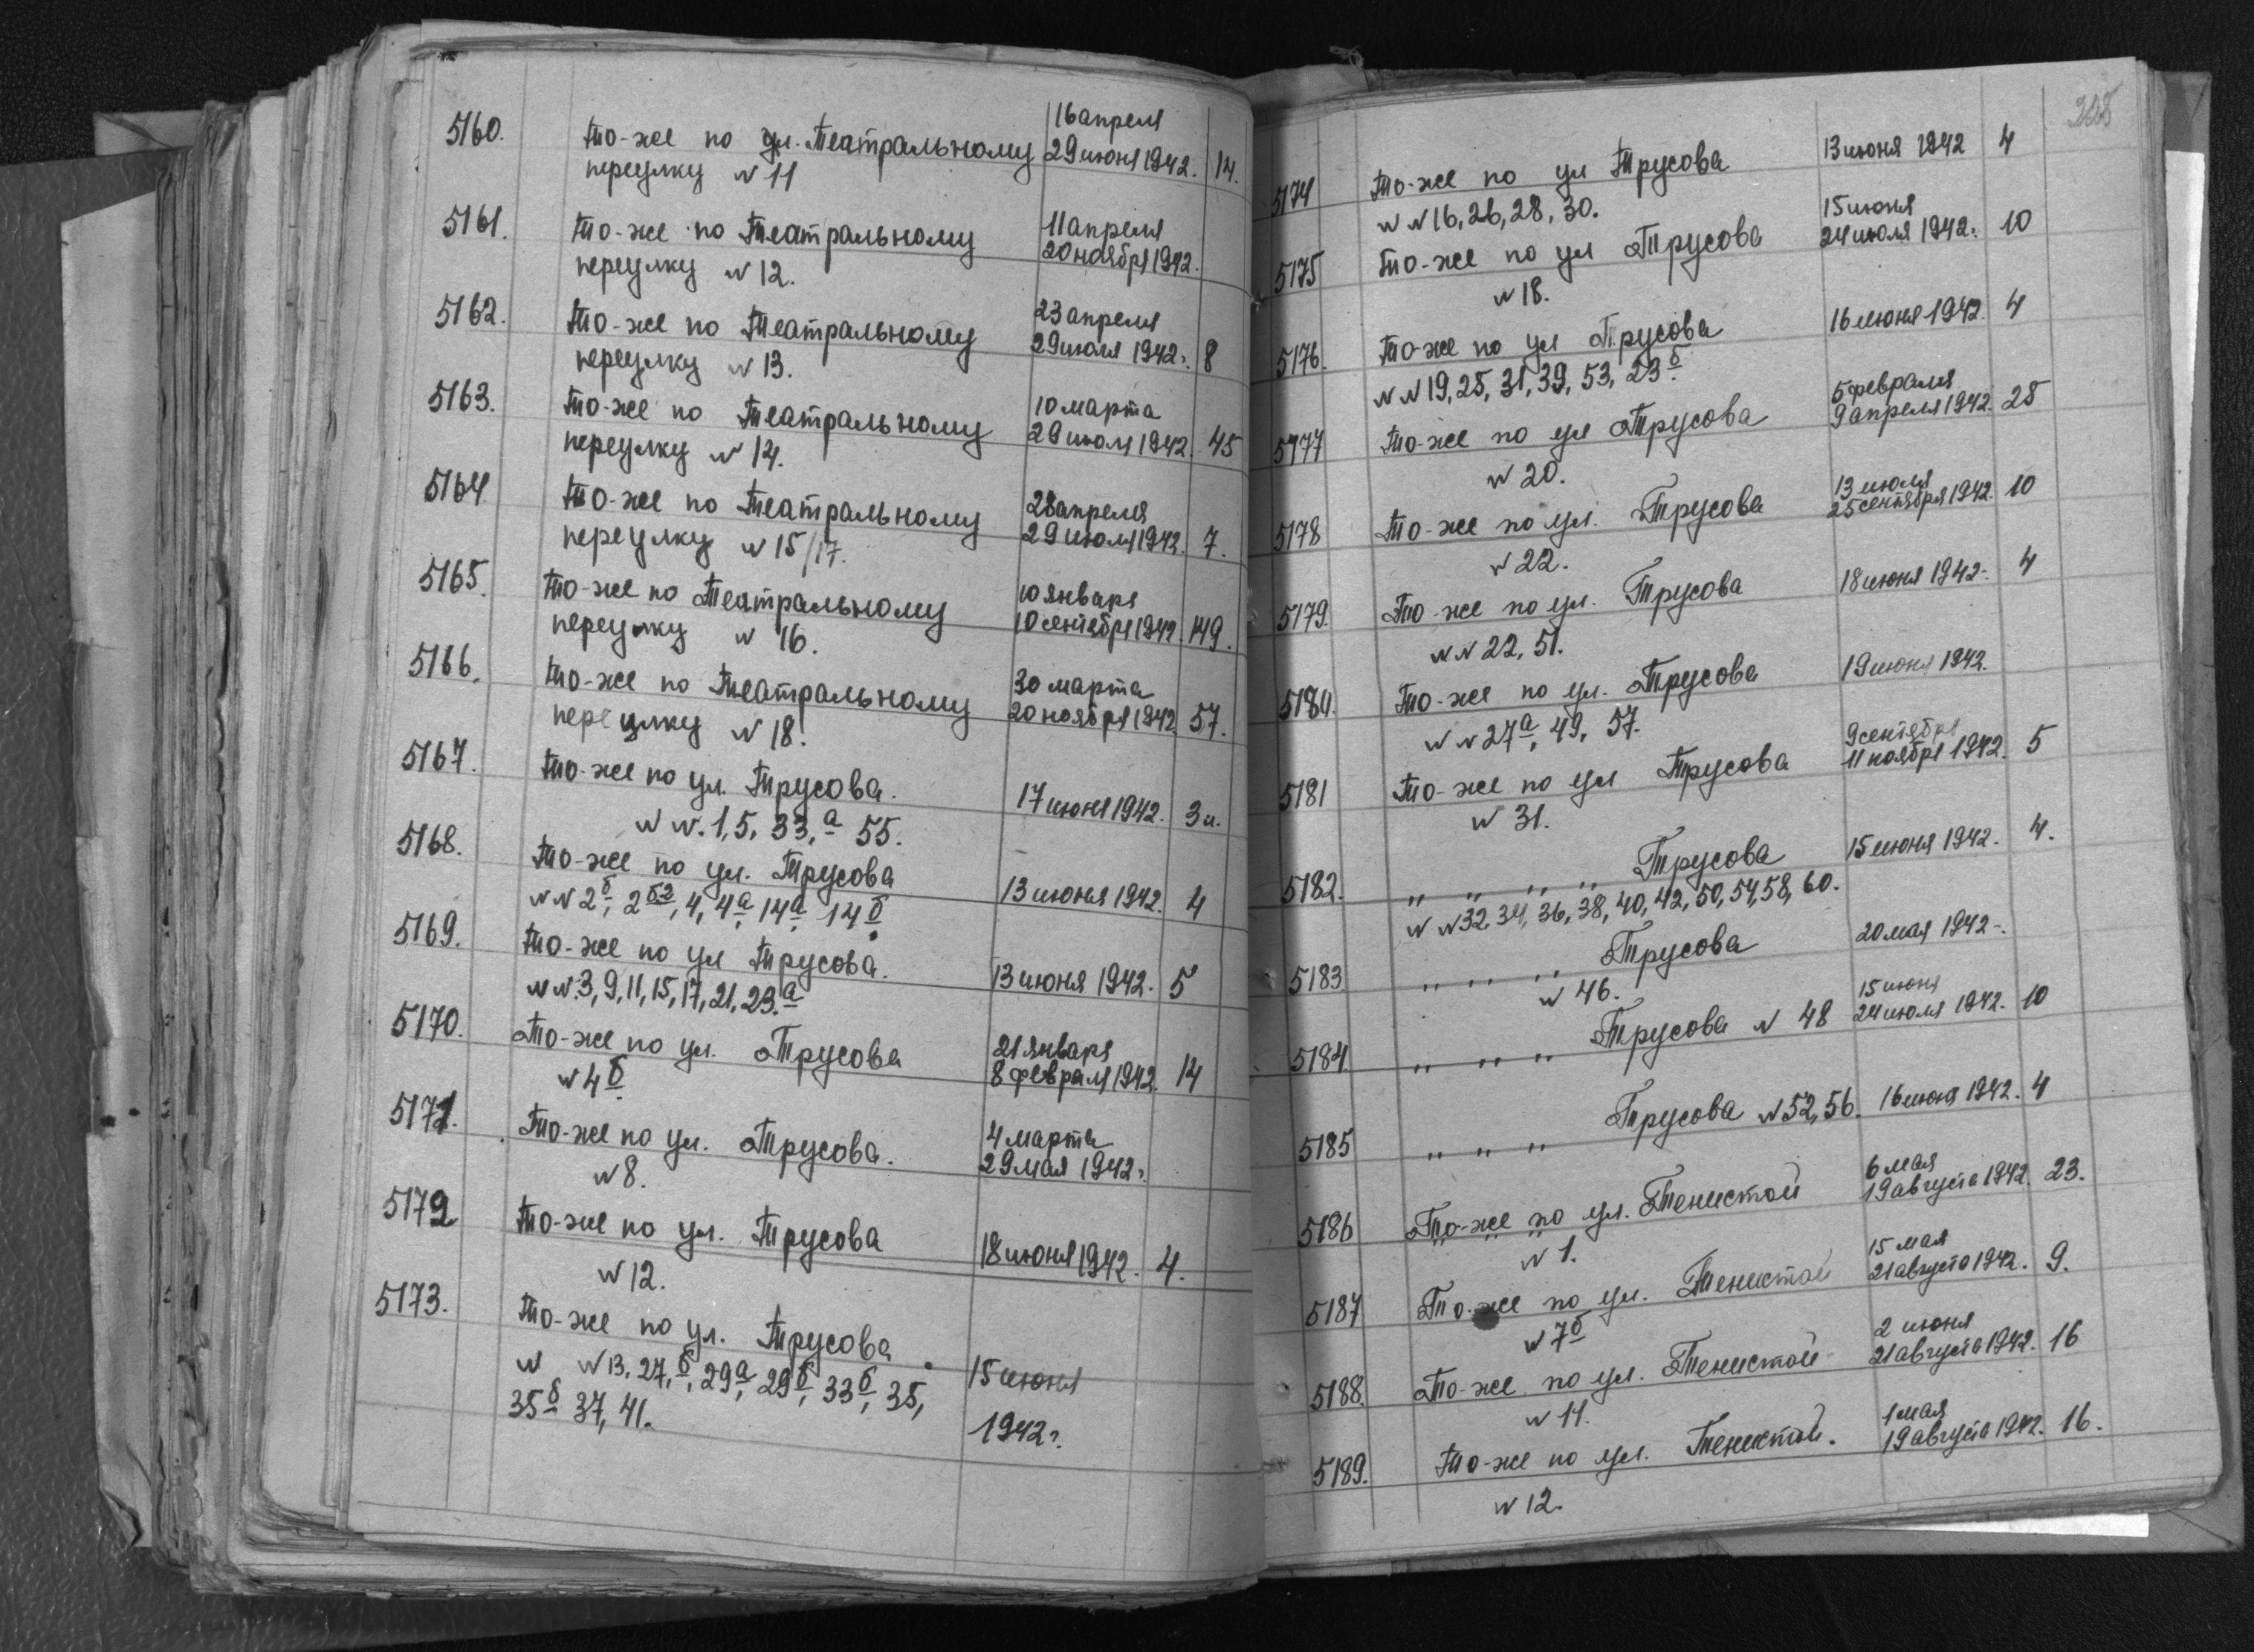 5160. То-же по ул. Театральному 16 апреля
переулку № 11 29 июня 1942. 14.
5161. То-же по Театральному 11 апреля
переулку № 12. 20 ноября 1942.
5162. То-же по Театральному 23 апреля
переулку № 13. 29 июля 1942г. 8
5163. То-же по Театральному 10 марта
переулку № 14. 29 июля 1942. 45
5164 То-же по Театральному 28 апреля
переулку № 15/17. 29 июля 1942. 7.
5165. То-же по Театральному 10 января
переулку № 16. 10 сентября 1942. 149.
5166. То-же по Театральному 30 марта
переулку № 18. 20 ноября 1942 57.
5167. То-же по ул. Трусова. 17 июня 1942. 3 л.
№ №. 1, 5, 33,а 55.
5168. То-же по ул. Трусова 13 июня 1942. 4
№ № 2б, 2б-2, 4, 4а, 14а, 14б.
5169. То-же по ул Трусова. 13 июня 1942. 5
№ №. 3, 9, 11, 15, 17, 21, 23.а
5170. То-же по ул. Трусова 21 января
№ 4б. 8 февраля 1942. 14
5171. То-же по ул. Трусова. 4 марта
№ 8. 29 мая 1942г.
5172 То-же по ул. Трусова 18 июня 1942. 4.
№ 12.
5173. То-же по ул. Трусова. 15 июня
№ № 13, 27,б, 29а, 29б, 33б, 35, 1942г.
35б 37, 41.
225
5174 То-же по ул Трусова 13 июня 1942 4
№ № 16, 26, 28, 30.
5175 То-же по ул Трусова 15 июня
№ 18. 24 июля 1942г. 10
5176. То-же по ул Трусова 16 июня 1942. 4
№ № 19, 25, 31, 39, 53, 23б.
5177 То-же по ул Трусова 5 февраля
№ 20. 9 апреля 1942. 25
5178 То-же по ул. Трусова 13 июля
№ 22. 25 сентября 1942. 10
5179. То-же по ул. Трусова 18 июня 1942г. 4
№ № 22, 51.
5180. То-же по ул. Трусова 19 июня 1942.
№ № 27а, 49, 57.
5181 То-же по ул Трусова 9 сентября
№ 31. 11 ноября 1942. 5
5182. " " " " Трусова 15 июня 1942. 4.
№ № 32, 34, 36, 38, 40, 42, 50, 54, 58, 60.
5183 " " " " Трусова 20 мая 1942-.
№ 46.
5184. " " " Трусова № 48 15 июня
24 июля 1942. 10
5185 " " " Трусова № 52, 56. 16 июня 1942. 4
5186 То-же по ул. Тенистой 6 мая
№ 1. 19 августа 1942. 23.
5187 То-же по ул. Тенистой 15 мая
№ 7б 21 августа 1942. 9.
5188. То-же по ул. Тенистой 2 июня
№ 11. 21 августа 1942. 16
5189. То-же по ул. Тенистой. 1 мая
№ 12. 19 августа 1942. 16.